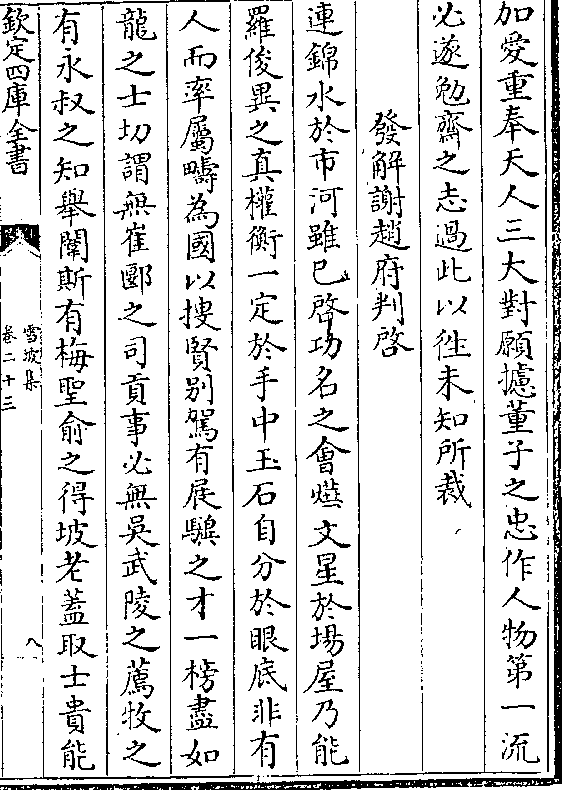 加愛重奉天人三大對願攄董子之忠作人物第一流
必遂勉齋之志過此以徃未知所裁
發解謝趙府判啓
連錦水於市河雖已啓功名之會爃文星於場屋乃能
羅俊異之真權衡一定於手中玉石自分於眼底非有
人而率屬疇為國以搜賢别駕有展驥之才一榜盡如
龍之士切謂無崔郾之司貢事必無吳武陵之薦牧之
有永叔之知舉闈斯有梅聖俞之得坡老蓋取士貴能
欽定四庫全書
雪坡集
卷二十三
八